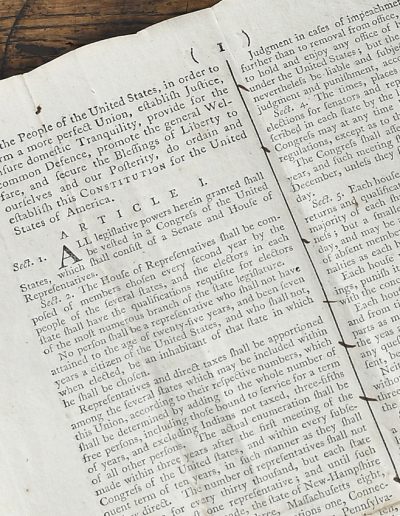 ( I )
the People of the United States, in order to
rm a more perfect Union, eſtabliſh Juſtice,
nſure domeſtic Tranquility, provide for the
common Defence, promote the general Wel-
fare, and ſecure the Bleſſings of Liberty to
ourſelves and our Poſterity, do ordain and
eſtabliſh this CONSTITUTION for the United
States of America.
A R T I C L E I.
Sect. 1. ALL legiſlative powers herein granted ſhall
be veſted in a Congreſs of the United
States, which ſhall conſiſt of a Senate and Houſe of
Repreſentatives.
Sect. 2. The Houſe of Repreſentatives ſhall be com-
poſed of members choſen every ſecond year by the
people of the ſeveral ſtates, and the electors in each
ſtate ſhall have the qualifications requiſite for electors
of the moſt numerous branch of the ſtate legiſlature.
No perſon ſhall be a repreſentative who ſhall not have
attained to the age of twenty-five years, and been ſeven
years a citizen of the United States, and who ſhall not,
when elected, be an inhabitant of that ſtate in which
he ſhall be choſen.
Repreſentatives and direct taxes ſhall be apportioned
among the ſeveral ſtates which may be included within
this Union, according to their reſpective numbers, which
ſhall be determined by adding to the whole number of
free perſons, including thoſe bound to ſervice for a term
of years, and excluding Indians not taxed, three-fifths
of all other perſons. The actual enumeration ſhall be
made within three years after the firſt meeting of the
Congreſs of the United States, and within every ſubſe-
quent term of ten years, in ſuch manner as they ſhall
The number of repreſentatives ſhall not
for every thirty thouſand, but each ſtate
one repreſentative; and until ſuch
made, the ſtate of New-Hampſhire
three, Maſſachuſetts eight,
ons one, Connec-
Pennſylva-
Judgment in caſes of impeachmen
further than to removal from office,
to hold and enjoy any office of
under the United States; but the
nevertheleſs be liable and ſubject
judgment and puniſhment, acco
Sect. 4. The times, places
elections for ſenators and rep
ſcribed in each ſtate by the
Congreſs may at any time
regulations, except as to
The Congreſs ſhall aſſe
year, and ſuch meeting
December, unleſs they
day.
Sect. 5. Each houſe
returns and qualific
majority of each
neſs; but a ſmalle
day, and may be
abſent member
nalties as each
Each houſe
ings, puniſh it
Each houſe
and from ti
parts as